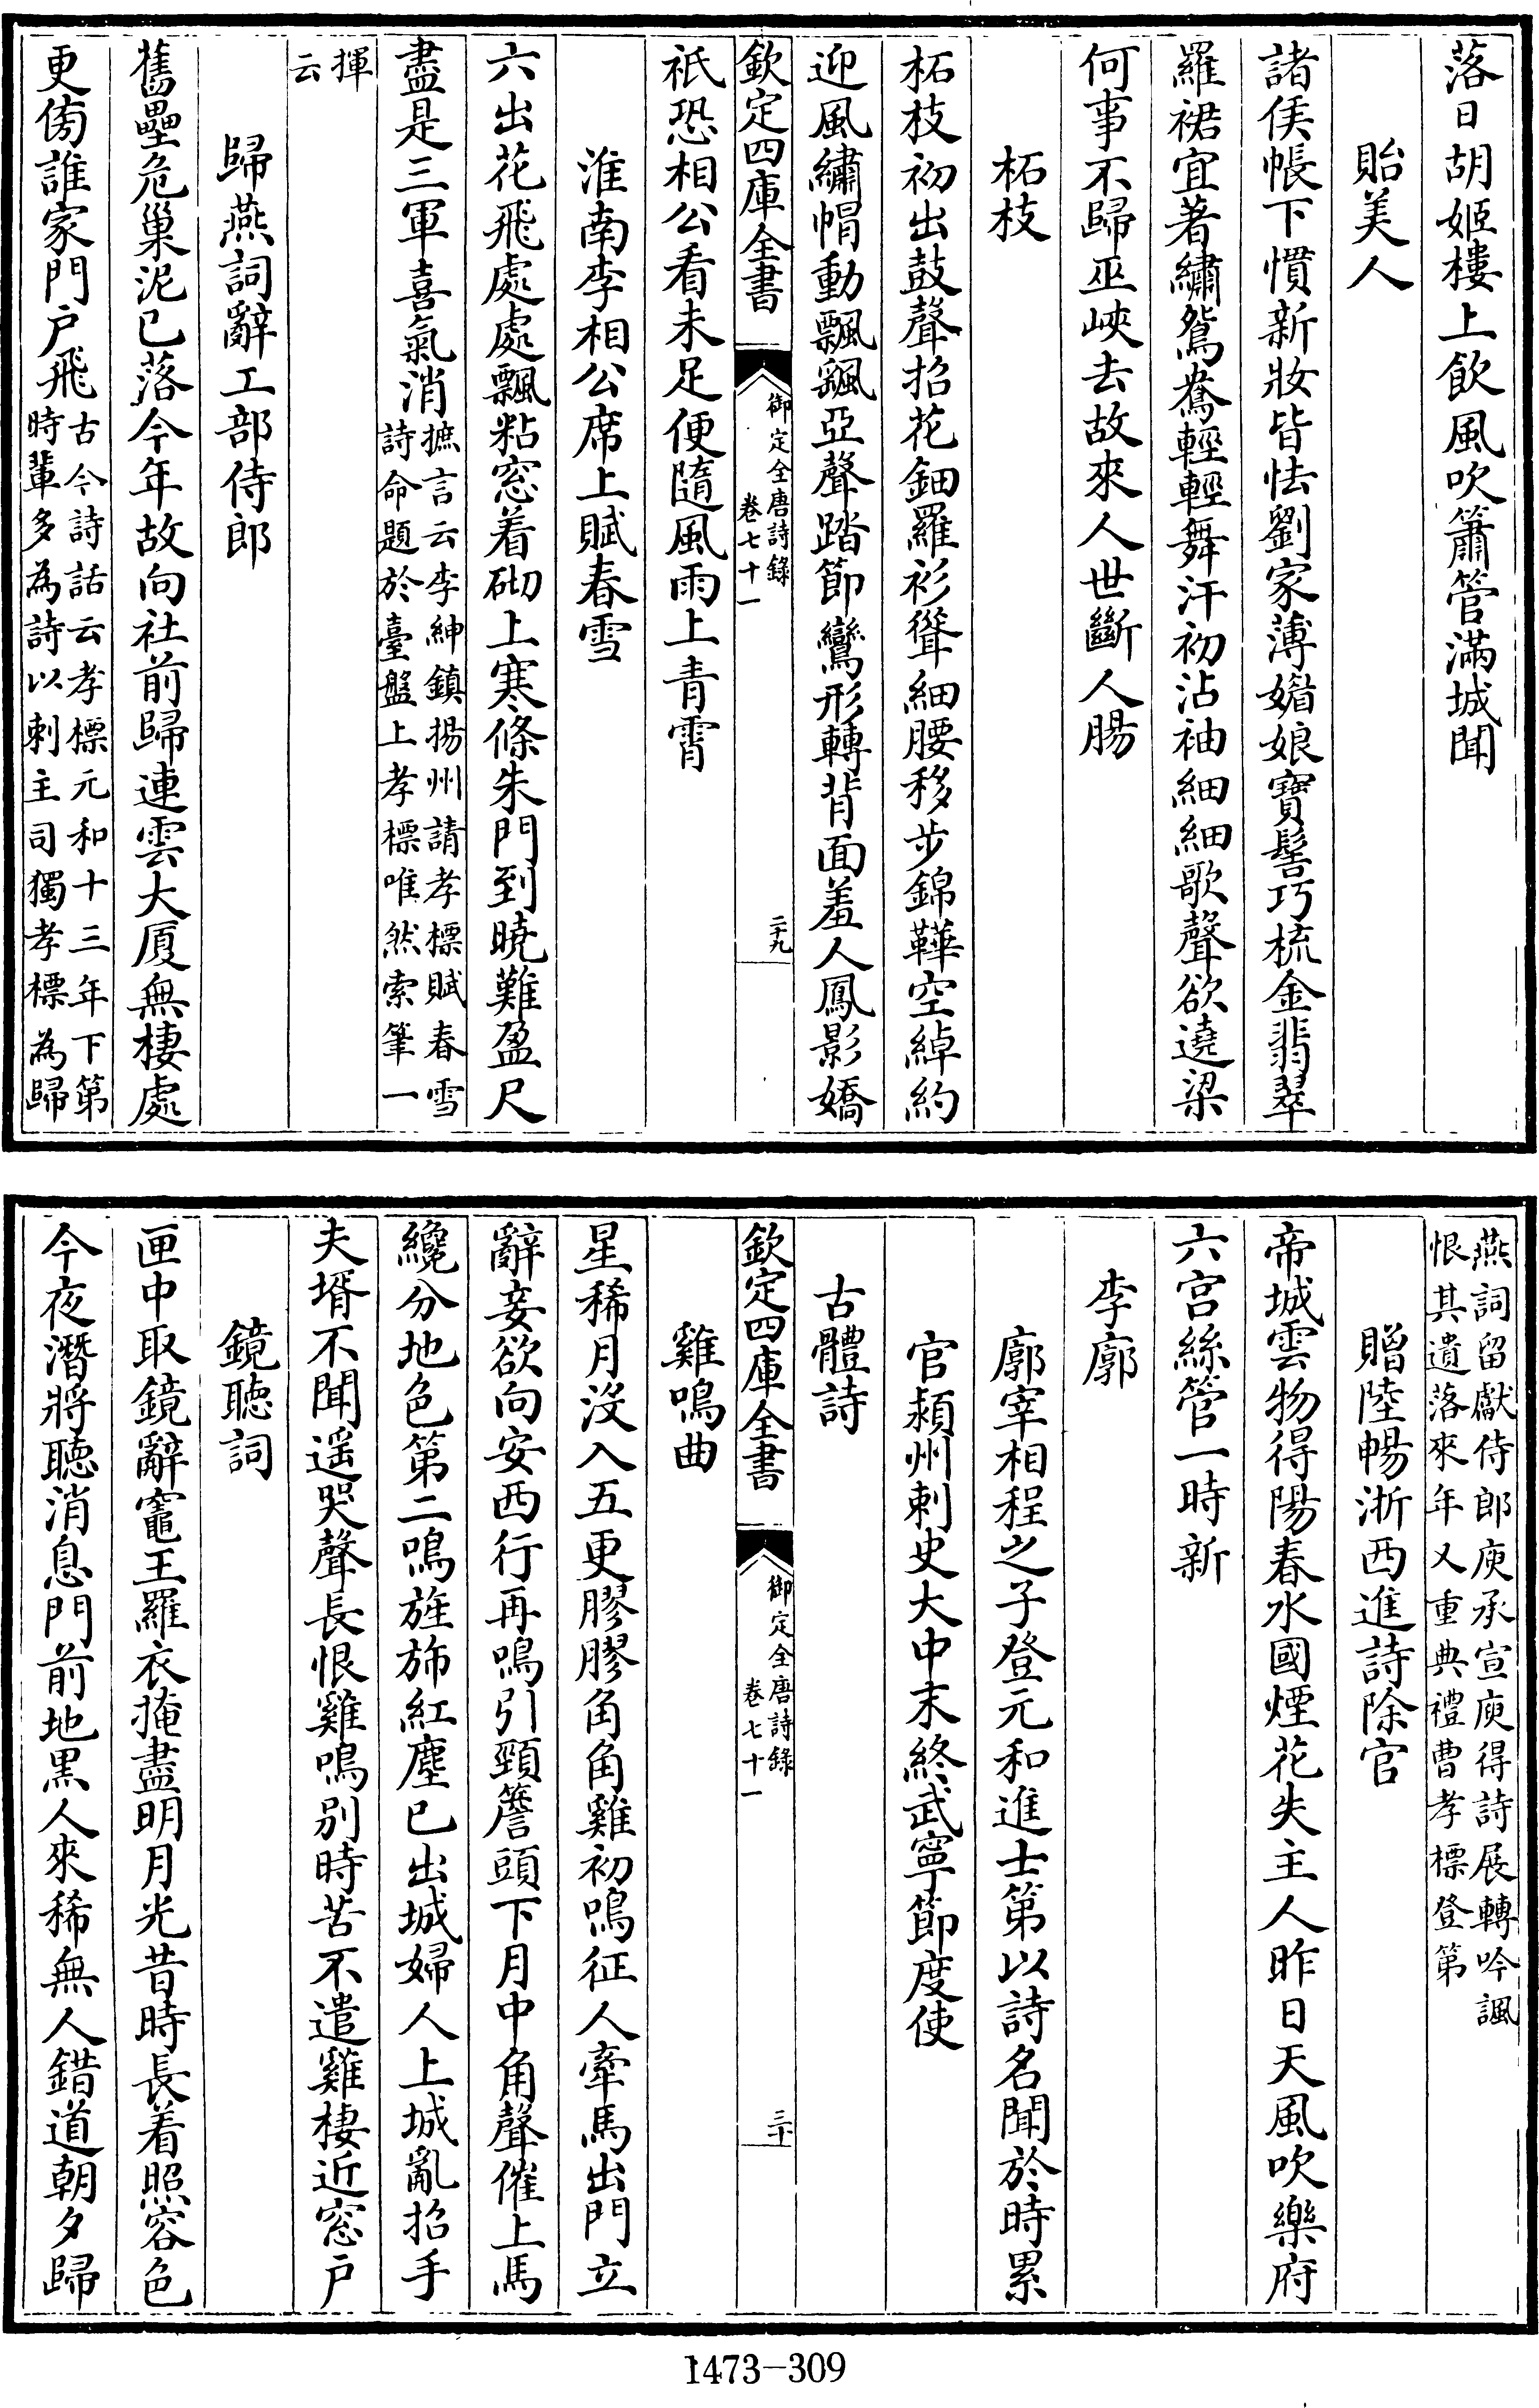 落日胡姬樓上飲風吹簫管滿城聞
貽美人
諸侯帳下慣新妝皆怯劉家薄媚娘寶髻巧梳金翡翠
羅裙宜著繡鴛鴦輕輕舞汗初沾袖細細歌聲欲遶梁
何事不歸巫峽去故來人世斷人腸
柘枝
柘枝初出鼓聲招花鈿羅衫聳細腰移步錦鞾空綽約
迎風繡帽動飄颻亞聲踏節鸞形轉背面羞人鳳影嬌
欽定四庫全書
御定全唐詩錄
卷七十一
二十九
祇恐相公看未足便隨風雨上青霄
淮南李相公席上賦春雪
六出花飛處處飄粘窓着砌上寒條朱門到曉難盈尺
盡是三軍喜氣消
摭言云李紳鎮揚州請孝標賦春雪
詩命題於臺盤上孝標唯然索筆一
揮
云
歸燕詞辭工部侍郎
舊壘危巢泥已落今年故向社前歸連雲大厦無棲處
更傍誰家門户飛
古今詩話云孝標元和十三年下第
時輩多為詩以刺主司獨孝標為歸
燕詞留獻侍郎庾承宣庾得詩展轉吟諷
恨其遺落來年乂重典禮曹孝標登第
贈陸暢浙西進詩除官
帝城雲物得陽春水國煙花失主人昨日天風吹樂府
六宫絲管一時新
李廓
廓宰相程之子登元和進士第以詩名聞於時累
官潁州刺史大中末終武寧節度使
古體詩
欽定四庫全書
御定全唐詩錄
卷七十一
三十
雞鳴曲
星稀月沒入五更膠膠角角雞初鳴征人牽馬出門立
辭妾欲向安西行再鳴引頸簷頭下月中角聲催上馬
纔分地色第二鳴旌斾紅塵已出城婦人上城亂招手
夫壻不聞遥哭聲長恨雞鳴別時苦不遣雞棲近窓户
鏡聽詞
匣中取鏡辭竈王羅衣掩盡明月光昔時長着照容色
今夜潛將聽消息門前地黑人來稀無人錯道朝夕歸
1473-309